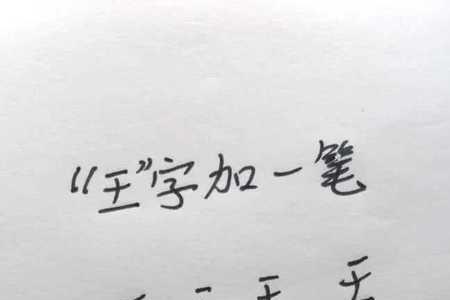 “王”字加一笔